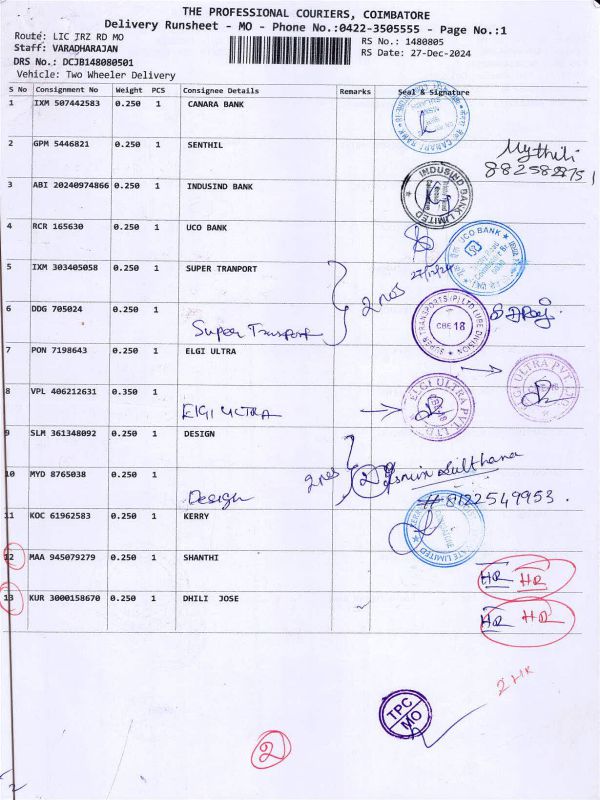 THE PROFESSIONAL COURIERS, COIMBATORE
Delivery Runsheet - MO - Phone No.:0422-3505555 - Page No.:1
Route: LIC TRZ RD MO RS No.: 1480805
Staff: VARADHARAJAN RS Date: 27-Dec-2024
DRS No.: DCJB148080501
Vehicle: Two Wheeler Delivery
S No Consignment No Weight PCS Consignee Details Remarks Seal & Signature
1 IXM 507442583 0.250 1 CANARA BANK
2 GPM 5446821 0.250 1 SENTHIL Mythili
3 ABI 20240974866 0.250 1 INDUSIND BANK INDUSIND BANK LIMITED
4 RCR 165630 0.250 1 UCO BANK UCO BANK
27/12/24
5 IXM 303405058 0.250 1 SUPER TRANPORT 2 nos
6 DDG 705024 0.250 1 Super Transport SUPER TRANSPORTS (P) LTD CBE 18
7 PON 7198643 0.250 1 ELGI ULTRA ELGI ULTRA PVT. LTD
8 VPL 406212631 0.350 1 ElGI ULTRA ELGI ULTRA PVT. LTD
9 SLM 361348092 0.250 1 DESIGN 2 nos 2 Sulthana
10 MYD 8765038 0.250 1 Design # 8122549953.
11 KOC 61962583 0.250 1 KERRY
12 MAA 945079279 0.250 1 SHANTHI HR HR
13 KUR 3000158670 0.250 1 DHILI JOSE HR HR
2 HR
TPC
MO
2